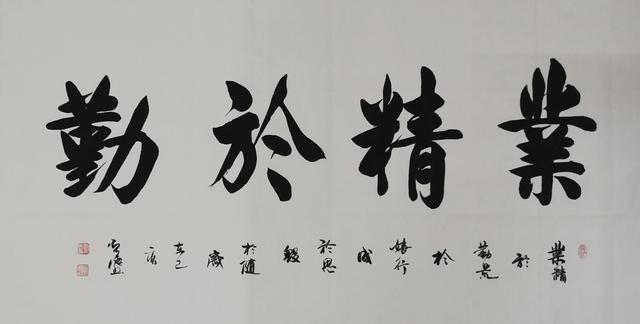 業精於勤
業精於勤荒於嬉行成於思毀於隨歲